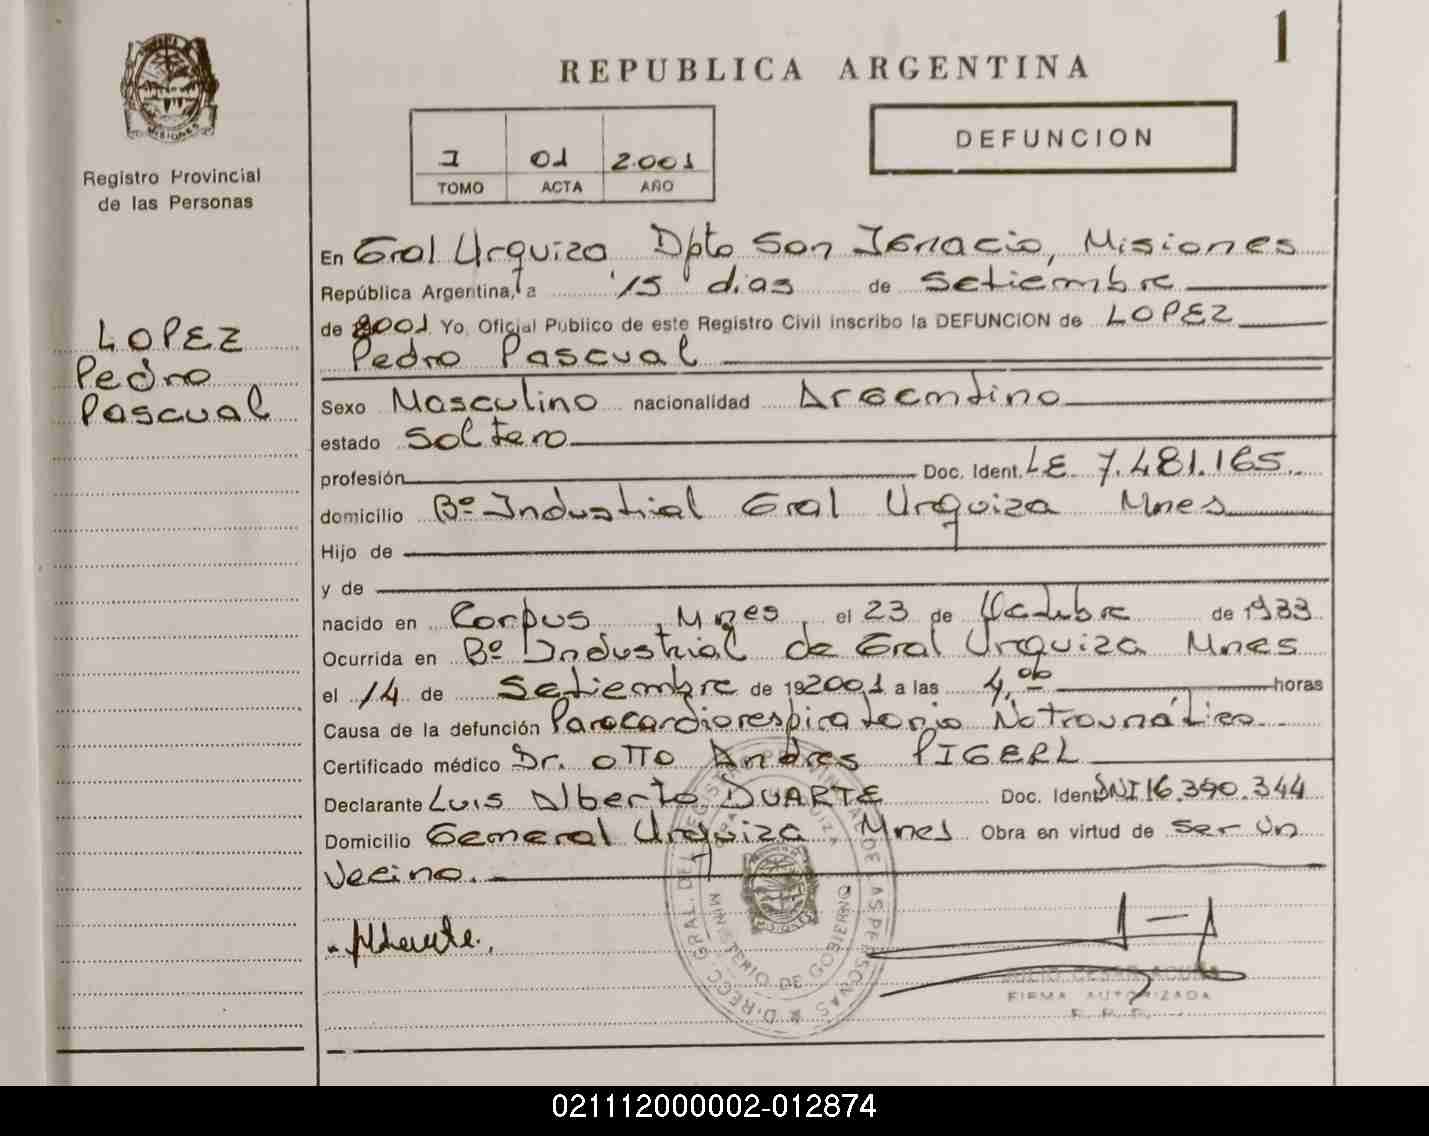 1
REPUBLICA ARGENTINA
MISIONES
Registro Provincial
de las Personas
I 01 2.001
TOMO ACTA AÑO
DEFUNCION
LOPEZ
Pedro
Pascual
En Gral Urquiza Dpto San Ignacio, Misiones
República Argentina, a 15 dias de Setiembre
de 2001 Yo, Oficial Público de este Registro Civil inscribo la DEFUNCION de LOPEZ
Pedro Pascual
Sexo Masculino nacionalidad Argentino
estado Soltero
profesión Doc. Ident. LE 7.481.165
domicilio Bº Industrial Gral Urquiza Mnes
Hijo de
y de
nacido en Corpus, Mnes, el 23 de Octubre de 1933
Ocurrida en Bº Industrial de Gral Urquiza Mnes
el 14 de Setiembre de 192001 a las 4,00 horas
Causa de la defunción Parocardiorespiratorio Notraumático
Certificado médico Dr. OTTO Andres PIGERL
Declarante Luis Alberto DUARTE Doc. Ident. DNI 16.390.344
Domicilio General Urquiza Mnes Obra en virtud de ser un
Vecino.
DIRECC. GRAL. DEL REGISTRO PROVINCIAL DE LAS PERSONAS
MINISTERIO DE GOBIERNO
JULIO CESAR ACUÑA
FIRMA AUTORIZADA
021112000002-012874